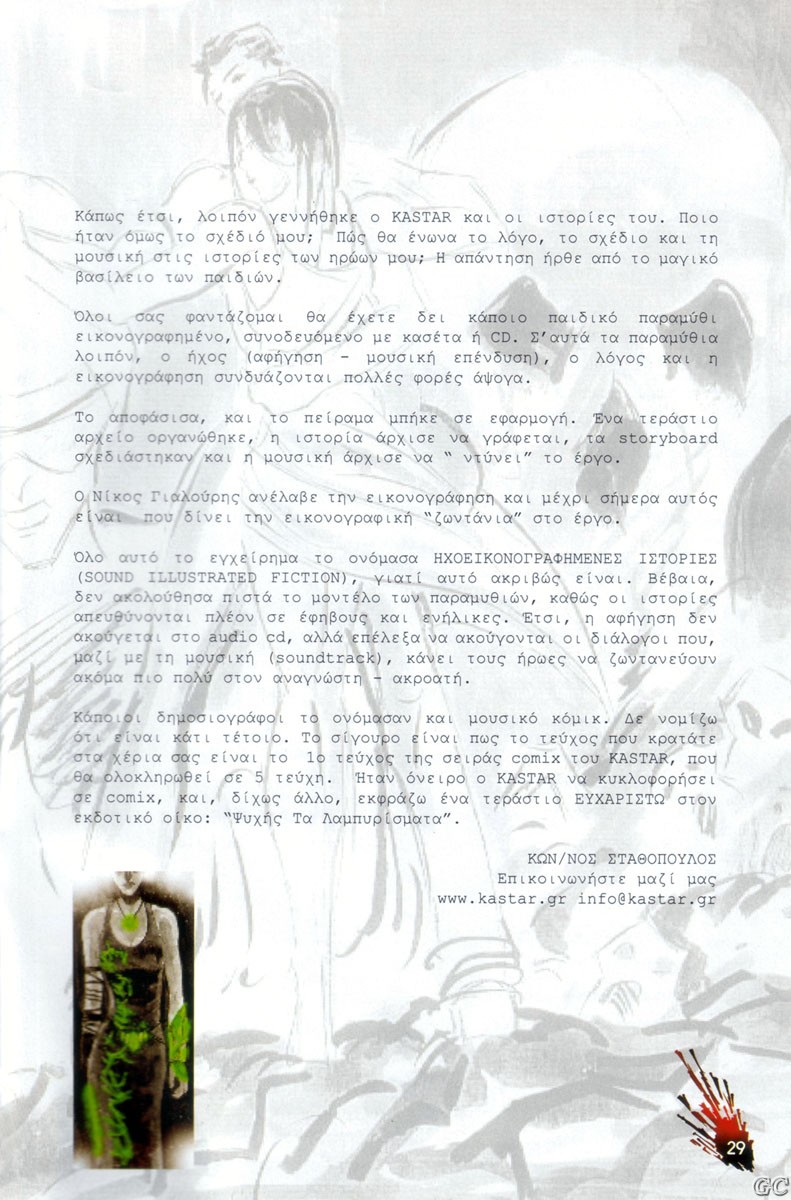 Κάπως έτσι, λοιπόν γεννήθηκε ο KASTAR και οι ιστορίες του. Ποιο
ήταν όμως το σχέδιό μου; Πώς θα ένωνα το λόγο, το σχέδιο και τη
μουσική στις ιστορίες των ηρώων μου; Η απάντηση ήρθε από το μαγικό
βασίλειο των παιδιών.
Όλοι σας φαντάζομαι θα έχετε δει κάποιο παιδικό παραμύθι
εικονογραφημένο, συνοδευόμενο με κασέτα ή CD. Σ’αυτά τα παραμύθια
λοιπόν, ο ήχος (αφήγηση – μουσική επένδυση), ο λόγος και η
εικονογράφηση συνδυάζονται πολλές φορές άψογα.
Το αποφάσισα, και το πείραμα μπήκε σε εφαρμογή. Ένα τεράστιο
αρχείο οργανώθηκε, η ιστορία άρχισε να γράφεται, τα storyboard
σχεδιάστηκαν και η μουσική άρχισε να “ ντύνει” το έργο.
Ο Νίκος Γιαλούρης ανέλαβε την εικονογράφηση και μέχρι σήμερα αυτός
είναι που δίνει την εικονογραφική “ζωντάνια” στο έργο.
Όλο αυτό το εγχείρημα το ονόμασα ΗΧΟΕΙΚΟΝΟΓΡΑΦΗΜΕΝΕΣ ΙΣΤΟΡΙΕΣ
(SOUND ILLUSTRATED FICTION), γιατί αυτό ακριβώς είναι. Βέβαια,
δεν ακολούθησα πιστά το μοντέλο των παραμυθιών, καθώς οι ιστορίες
απευθύνονται πλέον σε έφηβους και ενήλικες. Έτσι, η αφήγηση δεν
ακούγεται στο audio cd, αλλά επέλεξα να ακούγονται οι διάλογοι που,
μαζί με τη μουσική (soundtrack), κάνει τους ήρωες να ζωντανεύουν
ακόμα πιο πολύ στον αναγνώστη – ακροατή.
Κάποιοι δημοσιογράφοι το ονόμασαν και μουσικό κόμικ. Δε νομίζω
ότι είναι κάτι τέτοιο. Το σίγουρο είναι πως το τεύχος που κρατάτε
στα χέρια σας είναι το 1ο τεύχος της σειράς comix του KASTAR, που
θα ολοκληρωθεί σε 5 τεύχη. Ήταν όνειρο ο KASTAR να κυκλοφορήσει
σε comix, και, δίχως άλλο, εκφράζω ένα τεράστιο ΕΥΧΑΡΙΣΤΩ στον
εκδοτικό οίκο: “Ψυχής Τα Λαμπυρίσματα”.
ΚΩΝ/ΝΟΣ ΣΤΑΘΟΠΟΥΛΟΣ
Επικοινωνήστε μαζί μας
www.kastar.gr info@kastar.gr
29
GC